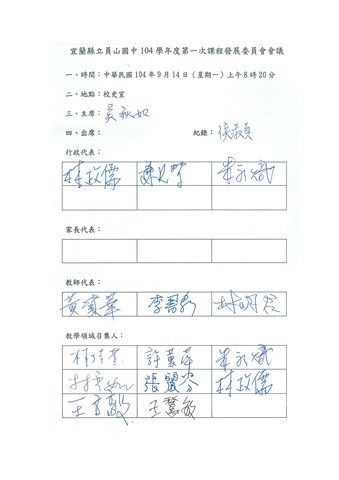 宜蘭縣立員山國中 104 學年度第一次課程發展委員會會議
一、時間：中華民國 104 年 9 月 14 日（星期一）上午 8 時 20 分
二、地點：校史室
三、主席：吳秋如
四、出席： 紀錄：
行政代表：
林政儒 朱永斌
家長代表：
教師代表：
黃賓華
教學領域召集人：
朱永斌
張麗芬 林政儒
王慧敏